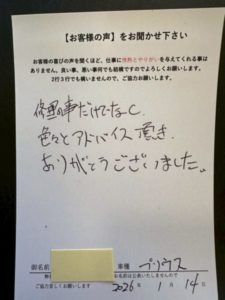 【お客様の声】をお聞かせ下さい
お客様の喜びの声を聞くほど、仕事に情熱とやりがいを与えてくれる事は
ありません。良い事、悪い事何でも結構ですのでよろしくお願いします。
2行3行でも構いませんので、ご協力お願いします。
修理の事だけでなく
色々とアドバイス頂き、
ありがとうございました。
御名前
車種 プリウス
お名前は公表いたしませんので
ご協力宜しくお願いします
2026年 1月 14日